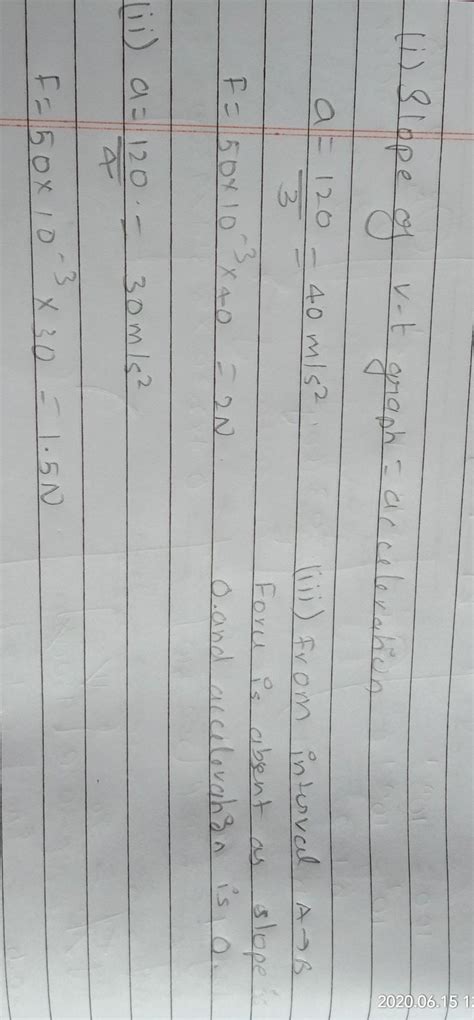 (i) Slope of v-t graph = acceleration
a = 120/3 = 40 m/s².
F = 50×10⁻³×40 = 2N.
(ii) a = 120/4 = 30 m/s²
F = 50×10⁻³ × 30 = 1.5N
(iii) from interval A→B
Force is absent as slope is
0. and acceleration is 0.
2020.06.15 1